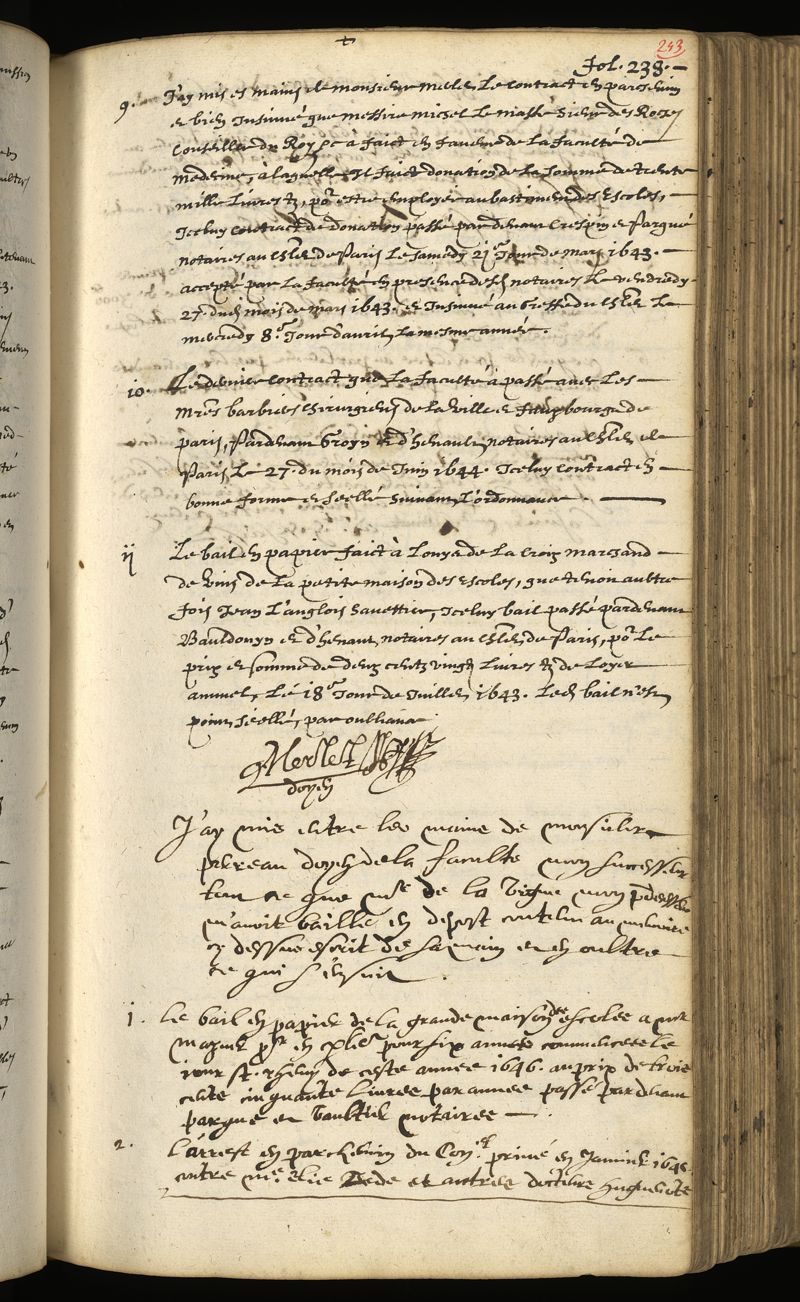 +
253
Fol. 238. —
9. J'ay mis es mains de monsieur Merlet Le contract en parchemin
et bien Insinué que messire michel Le masle Sieur des Roches
Conseiller du Roy &c à faict en faveur de La faculté de
medecine, à laquelle Il faict donation de La somme de trente
mille Livres tz, por estre employer au bastiment des Escoles, —
Iceluy contract de donation passé pardevant Crespin et Parqué
notaires au Chlet de Paris Le samedy 21e Jour de mars 1643. —
accepté par La faculté en presence desd notaires Le vendredy
27. dud mois de mars 1643. et Insinué au Greffe du Chlet Le
mercredy 8.e Jour d'avril La mesme année.
10. Le dernier contract que La faculté à passé avec Les —
Mres barbiers chirurgiens de La ville et faulxbourgs de
paris, Pardevant Groyn et d'henault, notaires au Chlet de
Paris Le 27. du mois de Juin 1644. Iceluy contract en —
bonne forme et scellé suivant L'ordonnance. —
ij Le bail en papier faict à Louys de La Croix marchand —
de vins de La petite maison des Escoles, que tenoit aultre
fois Jean L'anglois savettier, Iceluy bail passé pardevant
Bauldouyn et d'henaut, notaires au Chlet de Paris, por Le
prix et somme de deux centz vingt Livres tz de Loyer
annuel, Le 18e Jour de Juillet 1643. Led bail n'est
point scellé, par oubliance.
GMerlet
doyen
J'ay mis entre les mains de monsieur
perreau doyen de la faculte mon successeur
tout ce que mr de la vigne mon predecesseur
m'avoit baillé en depost contenu au memoire
cy dessus escrit de sa main et en oultre
ce qui s'ensuit.
j. le bail en papier de la grande maison des escoles a mr
pour six annees commencees le
jour st. rhemy de ceste annee 1646. au prix de trois
cents cinquante livres par annee passé pardevant
parqué et vaultier notaires —.
2. l'arrest en parchemin du Con.el privé en Janvier 1645.
contre me elie Bede et autres docteurs huguenots